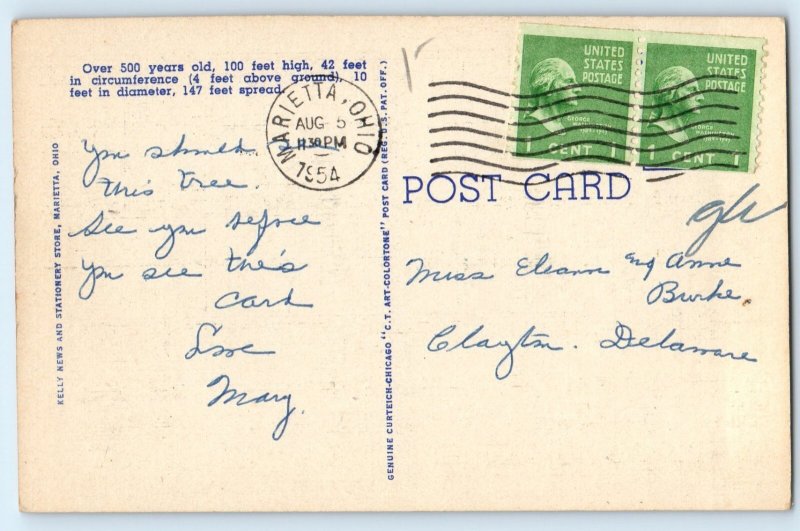 Over 500 years old, 100 feet high, 42 feet
in circumference (4 feet above ground), 10
feet in diameter, 147 feet spread.
MARIETTA, OHIO
AUG 5
11 30 PM
1954
UNITED
STATES
POSTAGE
GEORGE
WASHINGTON
1 CENT 1
UNITED
STATES
POSTAGE
GEORGE
WASHINGTON
1 CENT 1
POST CARD
KELLY NEWS AND STATIONERY STORE, MARIETTA, OHIO
GENUINE CURTEICH-CHICAGO "C.T. ART-COLORTONE" POST CARD (REG. U.S. PAT. OFF.)
You should
this tree.
See you before
you see this
card
Love
Mary.
Miss Eleanor and Anne
Burke
Clayton. Delaware